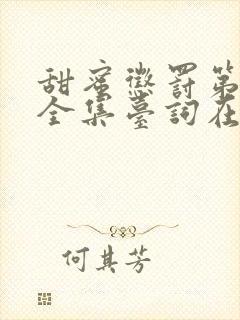 甜蜜懲罰第
全集臺詞在
何其芳